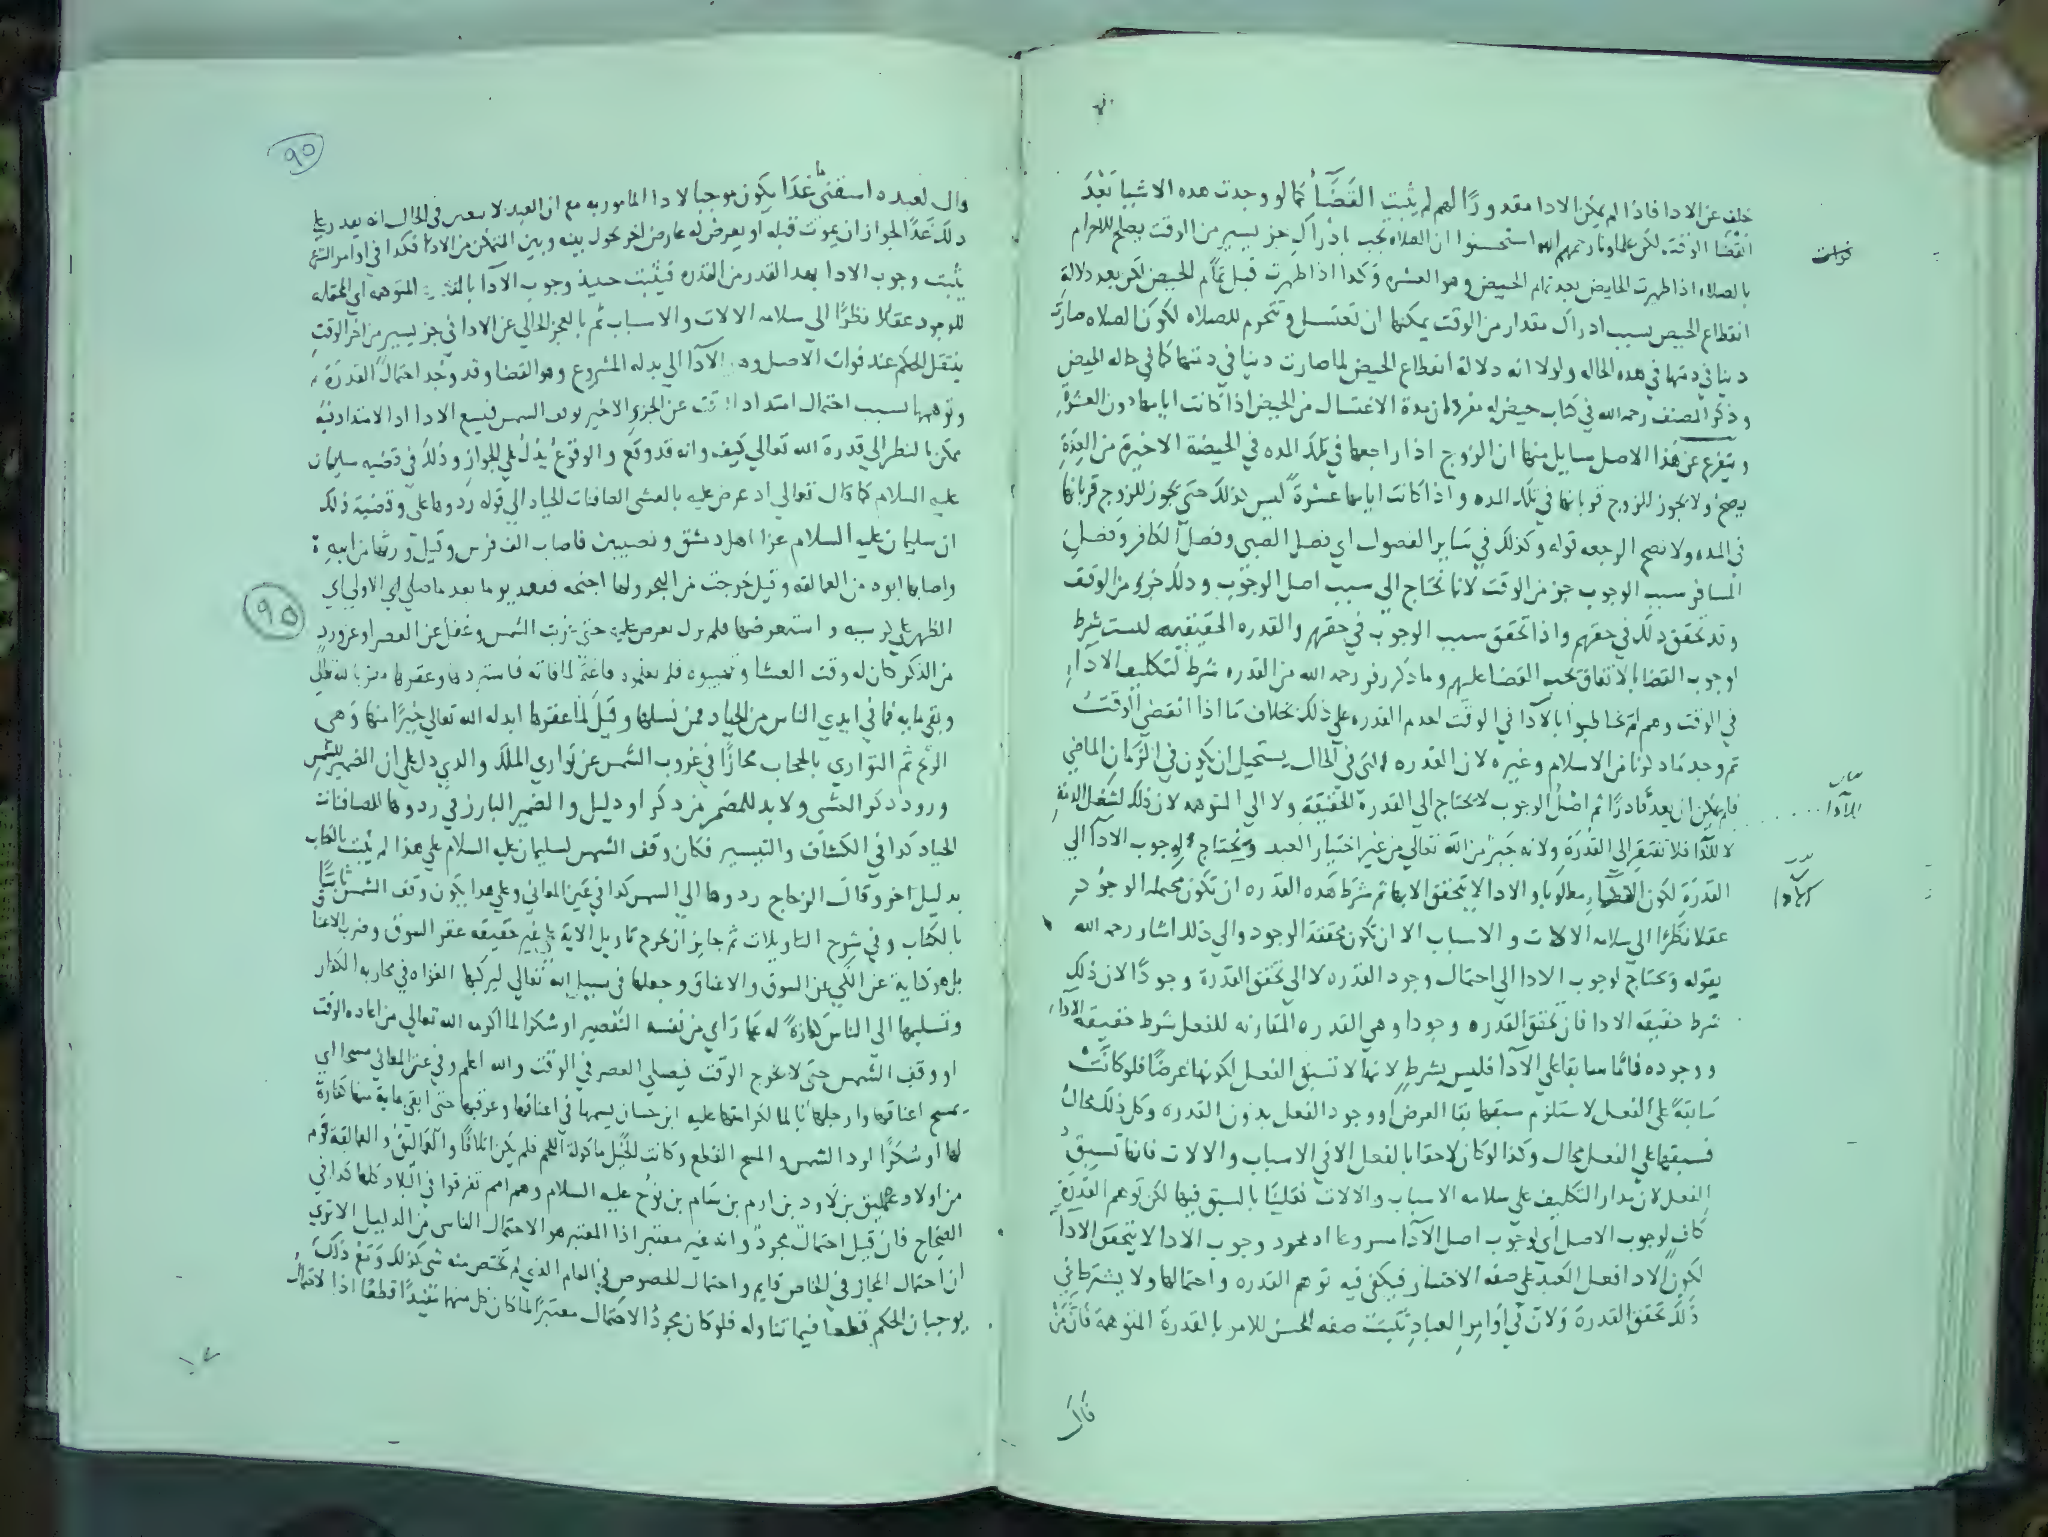 خلف عن الادا فاذا لم يكن الادا مقدورا لهم لم يثبت القضا كما لو وجدت هذه الاشيا بعد
انقضا الوقت لكن علماونا رحمهم الله استحسنوا ان الصلاه تجب بادراك جز يسير من الوقت يصلح للاحرام
بالصلاه اذا طهرت الحايض بعد تمام الحيض وهو العشره وكدا اذا طهرت قبل تمام الحيض لكن بعد دلالة
انقطاع الحيض بسبب ادراك مقدار من الوقت يمكنها ان تغتسل وتتحرم للصلاه لكون الصلاه صارت
دينا في ذمتها في هذه الحاله ولولا انه دلالة انقطاع الحيض لما صارت دينا في ذمتها كما في حالة الحيض
وذكر المصنف رحمه الله في كتاب حيض له مفرد ان مدة الاغتسال من الحيض اذا كانت ايامها دون العشرة
ويتفرع عن هذا الاصل مسايل منها ان الزوج اذا راجعها في تلك المده في الحيضة الاخيرة من العدة
يصح ولا يجوز للزوج قربانها في تلك المده واذا كانت ايامها عشرة ليس كذلك حتى يجوز للزوج قربانها
في المده ولا تصح الرجعه قوله وكذلك في ساير الفصول اي فصل الصبي وفصل الكافر وفصل
المسافر سبب الوجوب جز من الوقت لانا نحتاج الى سبب اصل الوجوب وذلك جزء من الوقت
وقد تحقق ذلك في حقهم واذا تحقق سبب الوجوب في حقهم والقدره الحقيقيه ليست بشرط
لوجوب القضا بالاتفاق يجب القضا عليهم وما ذكر زفر رحمه الله من القدره شرط لتكليف الادآء
في الوقت وهم لم يخاطبوا بالادآ في الوقت لعدم القدره على ذلك بخلاف ما اذا انقضى الوقت
ثم وجد ما ذكرنا من الاسلام وغيره لان القدره التي في الحال يستحيل ان تكون في الزمان الماضي
فلم يمكن ان يعد قادرا ثم اصل الوجوب لا يحتاج الى القدرة الحقيقة ولا الى المتوهمه لان ذلك لشغل الذمة
لا للادا فلا تفتقر الى القدرة ولانه جبر من الله تعالى من غير اختيار العبد ويحتاج لوجوب الادآ الى
القدرة لكون مطلوبا والادا لا يتحقق الا بها ثم شرط هذه القدره ان تكون محتملة الوجود
عقلا نظرا الى سلامه الالات والاسباب الا ان تكون محققة الوجود والى ذلك اشار رحمه الله
بقوله ويحتاج لوجوب الادا الى احتمال وجود القدره لا الى تحقق القدرة وجودا لان ذلك
شرط حقيقه الادا فان تحقق القدره وجودا وهي القدره المقارنه للفعل شرط حقيقه الادآء
ووجوده فاما سابقا على الادآ فليس بشرط لانها لا تسبق الفعل لكونها عرضا فلو كانت
سابقة على الفعل لاستلزم سبقها بقا العرض او وجود الفعل بدون القدره وكل ذلك محال
فسبقها على الفعل محال وكذا لو كان لاحقا بالفعل الا في الاسباب والالات فانها تسبق
الفعل لان مدار التكليف على سلامه الاسباب والالات فقلنا بالسبق فيها لكن توهم القدرة
كاف لوجوب الاصل اي لوجوب اصل الادآ مشروعا اد مجرد وجوب الادا لا يتحقق الادا
لكون الادا فعل العبد على صفه الاختيار فيكفي فيه توهم القدره واحتمالها ولا يشترط في
ذلك تحقق القدرة ولان في اوامر العباد تثبت صفه الحسن للامر بالقدرة المتوهمة فان من
قال
٩٥
قال لعبده اسقني ما غدا يكون موجبا لادا المامور به مع ان العبد لا يعد في الحال انه يقدر على
ذلك غدا لجواز ان يموت قبله او يعرض له عارض اخر يحول بينه وبين التمكن من الادا فكدا في اوامر الشرع
يثبت وجوب الادا بهذا القدر من القدره فيثبت حينيذ وجوب الادآ بالقدرة المتوهمه اي المحتمله
للوجود عقلا نظرا الى سلامه الالات والاسباب ثم بالعجز الحالي عن الادا في جز يسير من اخر الوقت
ينتقل الحكم عند فوات الاصل وهو الادآ الى بدله المشروع وهو القضا وقد وجد احتمال القدرة
وتوهمها بسبب احتمال امتداد الوقت عن الجزء الاخير بوقف الشمس فيسع الادا اذ الامتداد فيه
ممكن بالنظر الى قدرة الله تعالى كيف وانه قد وقع والوقوع يدل على الجواز وذلك في قضيه سليمان
عليه السلام كما قال تعالى اذ عرض عليه بالعشي الصافنات الجياد الى قوله ردوها علي وقضية ذلك
ان سليمان عليه السلام غزا اهل دمشق ونصيبين فاصاب الف فرس وقيل ورثها من ابيه
واصابها ابوه من العمالقه وقيل خرجت من البحر ولها اجنحه فقعد يوما بعد ما صلى اي الاولى اي
٩٥
الظهر على كرسيه واستعرضها فلم تزل تعرض عليه حتى غربت الشمس وغفل عن العصر او عن ورد
من الذكر كان له وقت العشا وتهيبوه فلم يعلموه فاغتم لما فاته فاستردها وعقرها مقربا لله تعالى
وبقي مايه فما في ايدي الناس من الجياد فمن نسلها وقيل لما عقرها ابدله الله تعالى خيرا منها وهي
الريح ثم التواري بالحجاب مجازا في غروب الشمس عن تواري الملك والذي دل على ان الضمير للشمس
ورود ذكر العشى ولا بد للمضمر من ذكر او دليل والضمير البارز في ردوها للصافنات
الجياد كدا في الكشاف والتيسير فكان وقف الشمس لسليمان عليه السلام على هذا لم يثبت بالكتاب
بدليل اخر وقال الزجاج ردوها الى الشمس كدا في عين المعاني وعلى هدا يكون وقف الشمس ثابتا
بالكتاب وفي شرح التاويلات ثم جايز ان يخرج تاويل الاية على غير حقيقه عقر السوق وضرب الاعناق
بل هو كناية عن الكي على السوق والاعناق وجعلها في سبيل الله تعالى ليركبها الغزاه في محاربه الكفار
وتسليمها الى الناس كفارة له عما راى من نفسه التقصير او شكرا لما اكرمه الله تعالى من اعاده الوقت
او وقف الشمس حتى لا يخرج الوقت فيصلي العصر في الوقت والله اعلم وفي عين المعاني مسحا اي
يمسح اعناقها وارجلها لكرامتها عليه ابن حسان يسمها في اعناقها وعرقبها حتى ابقى مايه منها كفارة
لها او شكرا لرد الشمس والمسح القطع وكانت الخيل ماكولة اللحم فلم يكن اتلافا والعماليق والعمالقه قوم
من اولاد عمليق بن لاود بن ارم بن سام بن نوح عليه السلام وهم امم تفرقوا في البلاد كلها كدا في
الصحاح فان قيل احتمال مجرد وانه غير معتبر اذا المعتبر هو الاحتمال الناشى من الدليل الا ترى
ان احتمال المجاز في الخاص قايم واحتمال الخصوص في العام الذي لم يختص منه شى كذلك ومع ذلك
يوجبان الحكم قطعا فيما تناوله فلو كان مجرد الاحتمال معتبرا لما كان كل منهما مفيدا قطعا اذا لا احتمال